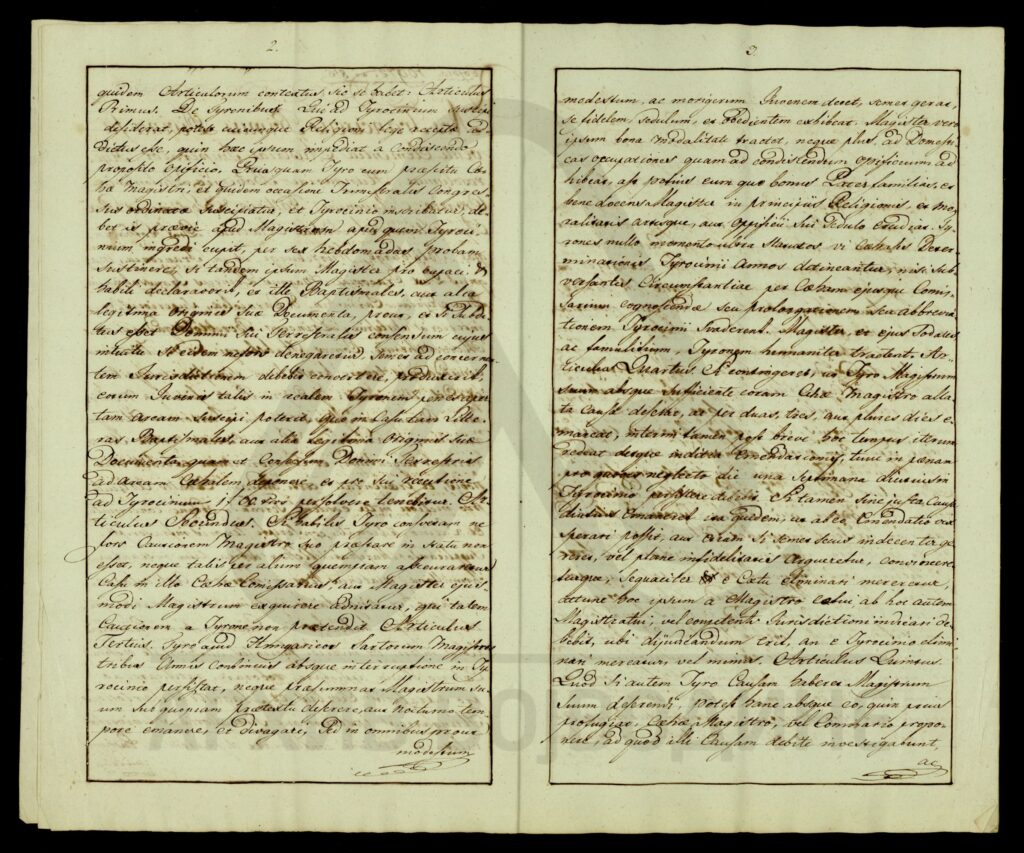 2.
quidem Articulorum contextus sic se habet: Articulus
Primus. De Tyronibus Qui ad Tyrocinium
desiderat, potest cuicunque Religioni lege recepta ad-
dictus esse, quin hoc ipsum impediat a condiscendo
proposito Opificio. Priusquam Tyro cum praescitu Ce-
hae Magistri, et quidem occasione Trimestralis Congres
sus ordinata suscipiatur, et Tyrocinio inscribatur, de-
bet is praevie apud Magistrum, apud quem Tyroci-
nium ingredi cupit, per sex hebdomadas probam
sustinere, si tandem ipsum Magister pro capaci &
habili declaraverit, et ille Baptismales, aut alia
legitima originis suae Documenta, prout, et si Subdi-
tus esset Domini sui Terrestralis consensum cujus
intuitu si eidem denegaretur, semet ad concernen-
tem Jurisdictionem debebit convertere, produxerit,
eorum Juvenis talis in realem Tyronem penes aper-
tam arcam suscipi poterit, quo in casu tam Litte-
ras Baptismales, aut alia legitima originis suae
Documenta, quam et Consensum Domini Terrestris
ad arcam Cehalem deponere, et pro sui receptione
ad Tyrocinium persolvere tenebitur. Ar-
ticulus Secundus. Si habilis Tyro
fors Cautionem Magistro suo praestare in statu non
esset, neque talis per alium quempiam assecuraretur
Casu in illo Cehae Comissarius, aut Magister ejus-
modi Magistrum exquirere adnitatur, qui talem
Cautionem a Tyrone non praetendit. Articulus
Tertius. Tyro apud Hungaricos Sartorum Magistros
tribus Annis continuis absque interruptione in Ty-
rocinio persistat, neque praesumat Magistrum su-
um sub quoniam praetextu deserere, aut nocturno tem
pore emanere, et divagari, sed in omnibus prout
modestum
3.
modestum, ac morigerum Juvenem decet, semet gerat,
se fidelem, sedulum, et obedientem exhibeat. Magister vero
ipsum bona modalitate tractet, neque plus ad Domesti-
cas occupationes quam ad condiscendum opificium ad
hibeat, ast potius eum quo bonus Pater familias, et
bene docens Magister in principiis Religionis, et mo-
ralitatis artisque, aut Opificii sui sedulo erudiat. Ty-
rones nullo momento ultra statutos vi Cehalis Deter
minationis Tyrocinii Annos detineantur, nisi sub-
versantes Circumstantiae per Ceham ejusque Comis-
sarium cognoscendae seu prolongationem seu abbrevia
tionem Tyrocinii suaderent. Magister, et ejus Sodales
ac famulitium, Tyronem humaniter tractent. Ar-
ticulus Quartus. Si contingeret, ut Tyro Magistrum
suum absque sufficiente coram Cehae Magistro alla-
ta Causa desertet, ac per duas, tres, aut plures dies e-
maneat, interim tamen post breve hoc tempus iterum
redeat detque indicia emendationis, tunc in paenam
pro quovis neglecto die una septimana diutius in
Tyrocinio persistere debebit. Si tamen sine justa Causa
diutius emaneret ita quidem, ut ab eo Emendatio vix
sperari posset, aut etiam si semet secus indecenter ge-
reret, vel plane infidelitatis argueretur, convincere-
turque, sequaciter e Caetu eliminari mereretur,
attunc hoc ipsum a Magistro Caetui, ab hoc autem
Magistratui, vel competenti Jurisdictioni intimari de-
bebit, ubi dijudicandum erit, an e Tyrocinio elimi-
nari mereatur, vel minus. Articulus Quintus.
Quod si autem Tyro Causam haberet Magistrum
suum deserendi, potest hanc absque eo, quin prius
profugiat, Cehae Magistro, vel Commissario propo-
nere, ad quod illi Causam debite investigabunt,
ac